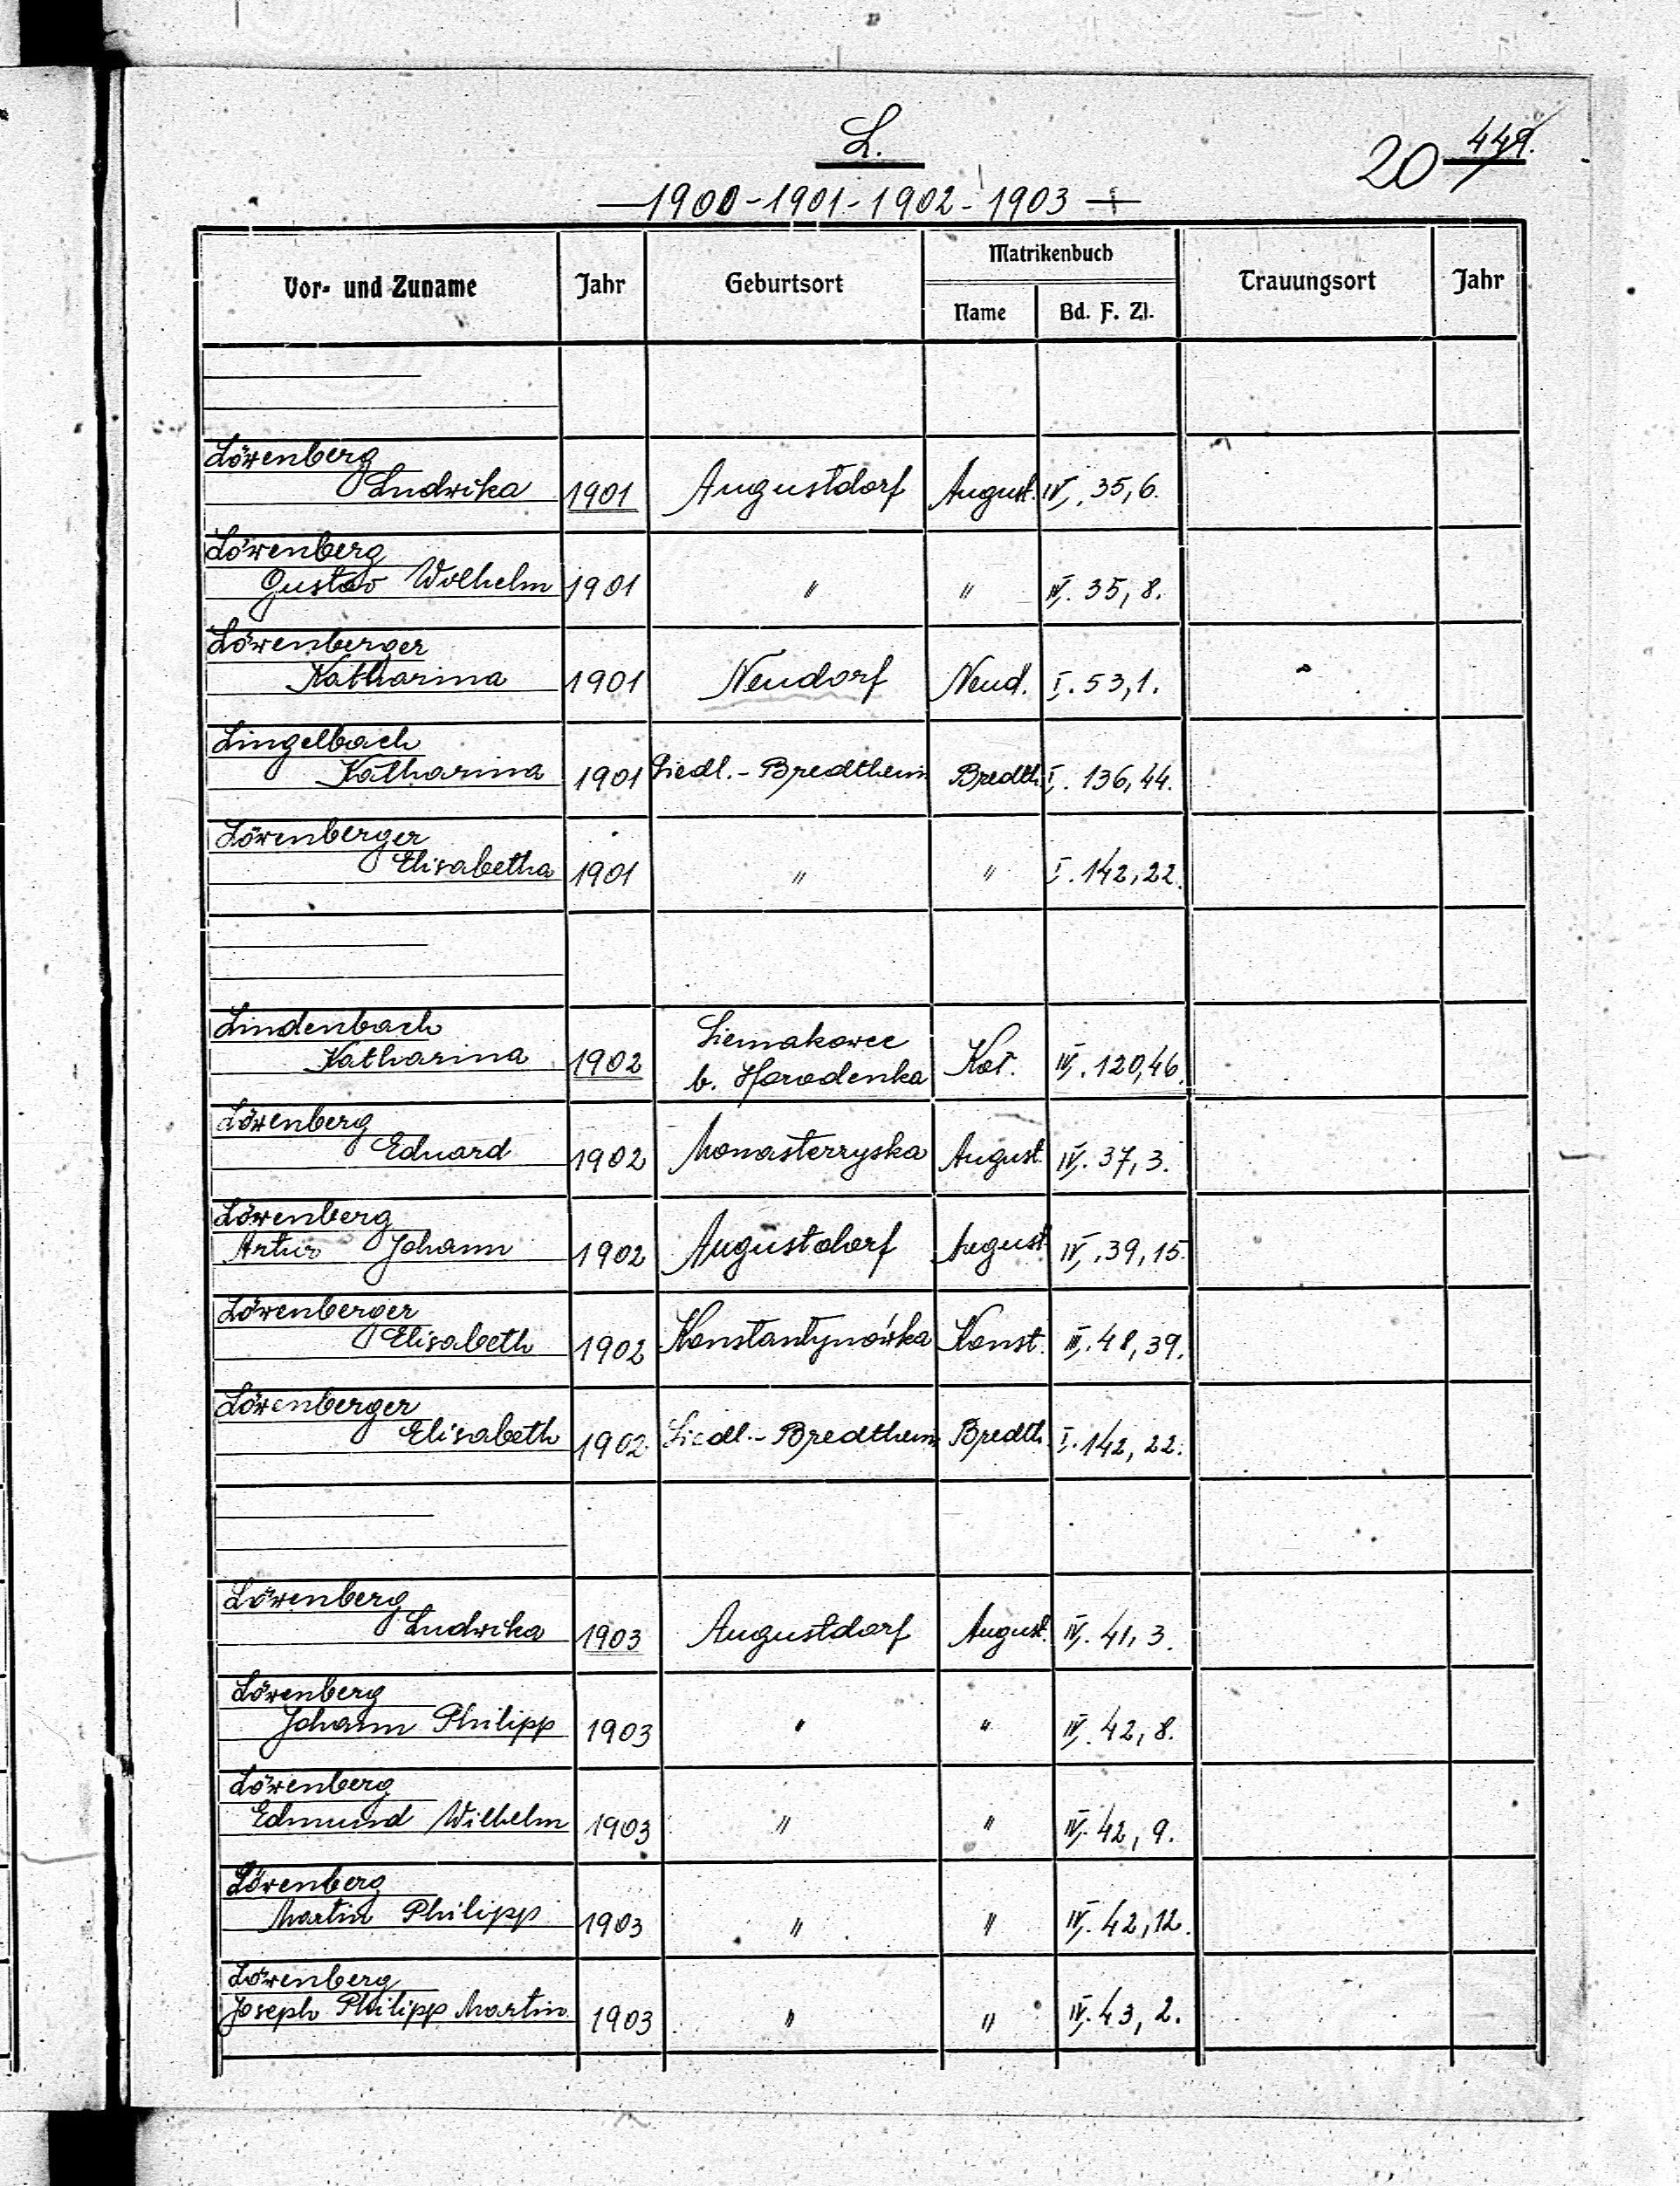 L.
20 449.
1900-1901-1902-1903
Vor- und Zuname Jahr Geburtsort Matrikenbuch Trauungsort Jahr
Name Bd. F. Zl.
Löwenberg
Ludwika 1901 Augustdorf August. IV. 35,6.
Löwenberg
Gustav Wilhelm 1901 " " IV. 35,8.
Löwenberger
Katharina 1901 Neudorf Neud. I. 53,1.
Lingelbach
Katharina 1901 Siedl.-Bredtheim Bredth. I. 136,44.
Löwenberger
Elisabetha 1901 " " I. 142,22.
Lindenbach
Katharina 1902 Siemakowce b. Horodenka IV. 120,46.
Löwenberg
Eduard 1902 Monasterryska August. IV. 37,3.
Löwenberg
Artur Johann 1902 Augustdorf August. IV. 39,15.
Löwenberger
Elisabeth 1902 Konstantynówka Konst. III. 48,39.
Löwenberger
Elisabeth 1902 Siedl.-Bredtheim Bredth. I. 142,22.
Löwenberg
Ludwika 1903 Augustdorf August. IV. 41,3.
Löwenberg
Johann Philipp 1903 " " IV. 42,8.
Löwenberg
Edmund Wilhelm 1903 " " IV. 42,9.
Löwenberg
Martin Philipp 1903 " " IV. 42,12.
Löwenberg
Joseph Philipp Martin 1903 " " IV. 43,2.